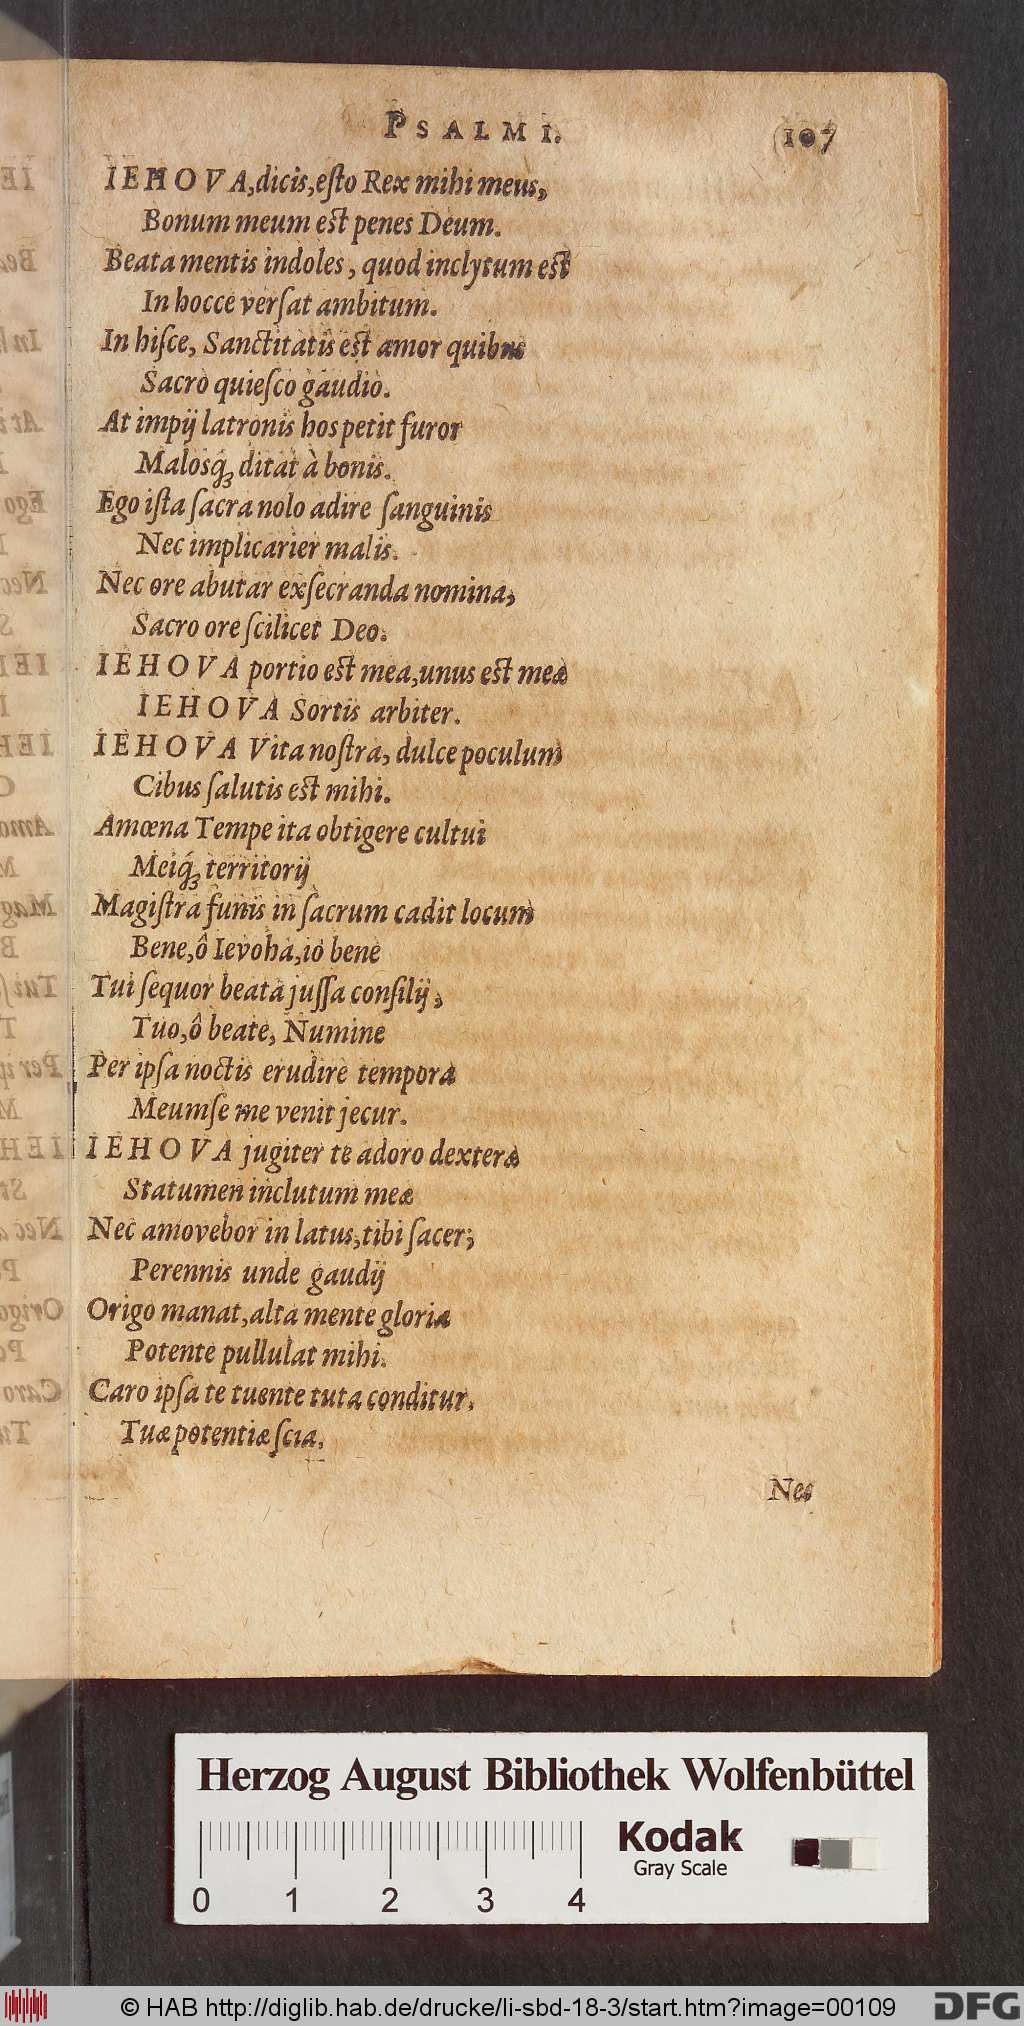 PSALMI. 107
IEHOVA, dicis, eſto Rex mihi meus,
Bonum meum est penes Deum.
Beata mentis indoles, quod inclytum est
In hocce verſat ambitum.
In hiſce, Sanctitatis est amor quibus
Sacro quieſco gaudio.
At impij latronis hos petit furor
Malosq́ꝫ ditat à bonis.
Ego iſta ſacra nolo adire ſanguinis
Nec implicarier malis.
Nec ore abutar exſecranda nomina,
Sacro ore ſcilicet Deo.
IEHOVA portio est mea, unus est meæ
IEHOVA Sortis arbiter.
IEHOVA Vita noſtra, dulce poculum
Cibus ſalutis est mihi.
Amœna Tempe ita obtigere cultui
Meiq́ꝫ territorij
Magiſtra funis in ſacrum cadit locum
Bene, ô Ievoha, io bene
Tui ſequor beata juſſa conſilij,
Tuo, ô beate, Numine
Per ipſa noctis erudire tempora
Meumſe me venit jecur.
IEHOVA jugiter te adoro dexteræ
Statumen inclutum meæ
Nec amovebor in latus, tibi ſacer;
Perennis unde gaudij
Origo manat, alta mente gloria
Potente pullulat mihi.
Caro ipſa te tuente tuta conditur,
Tuæ potentiæ ſcia.
Nec
Herzog August Bibliothek Wolfenbüttel
Kodak
Gray Scale
0 1 2 3 4
© HAB http://diglib.hab.de/drucke/li-sbd-18-3/start.htm?image=00109
DFG